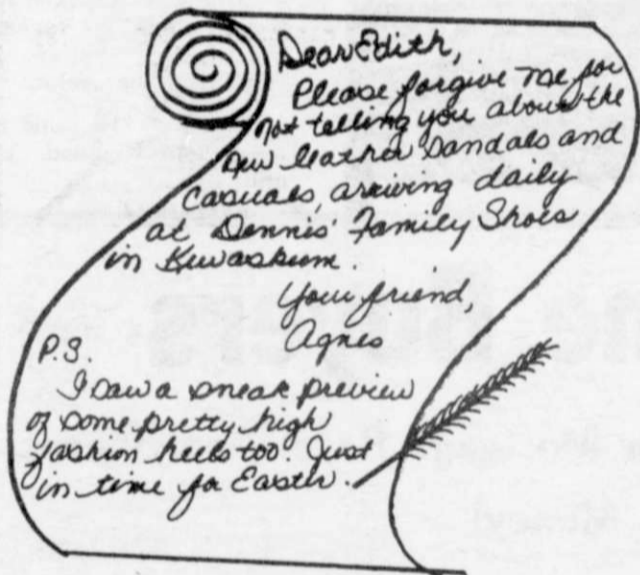 Dear Edith,
Please forgive me for
not telling you about the
new leather sandals and
casuals, arriving daily
at Dennis' Family Shoes
in Kewaskum.
Your friend,
Agnes
P.S.
I saw a sneak preview
of some pretty high
fashion heels too. Just
in time for Easter.